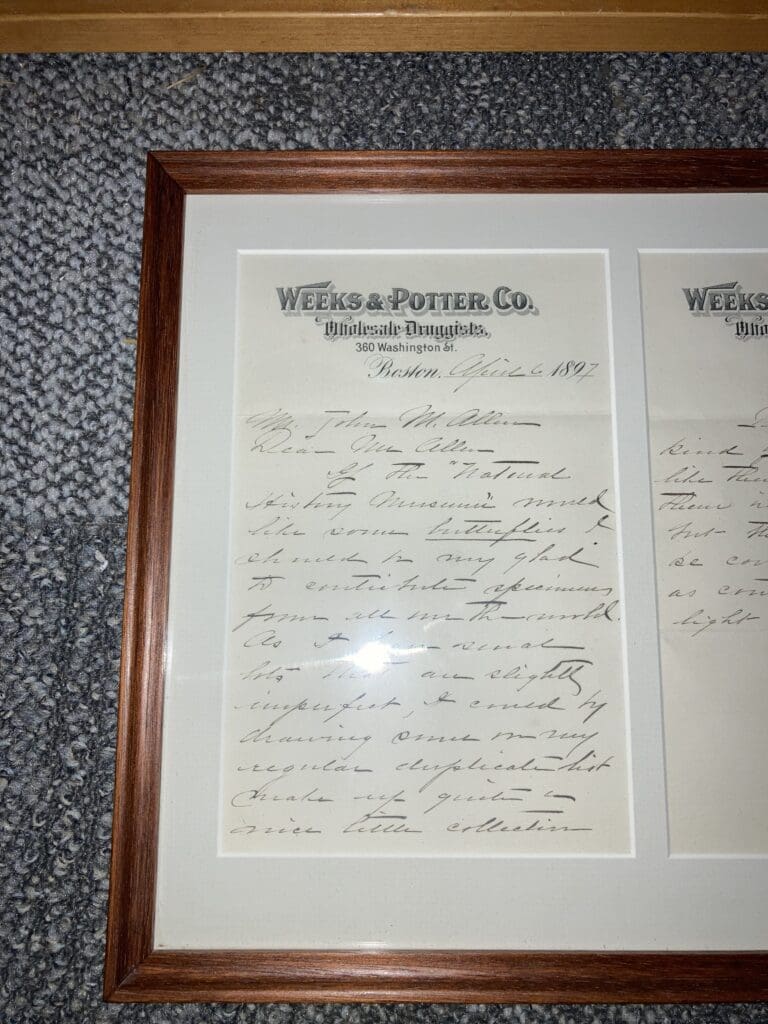 WEEKS & POTTER CO.
Wholesale Druggists,
360 Washington St.
Boston, April 6 1897
Mr. John M. Allen
Dear Mr Allen
If the "Natural
History Museum" would
like some butterflies I
should be very glad
to contribute specimens
from all over the world.
As I have small
lots that are slightly
imperfect, I could by
drawing some on my
regular duplicate list
make up quite a
nice little collection
WEEKS
Who
I
kind
like them
them
but th
be con
as con
light